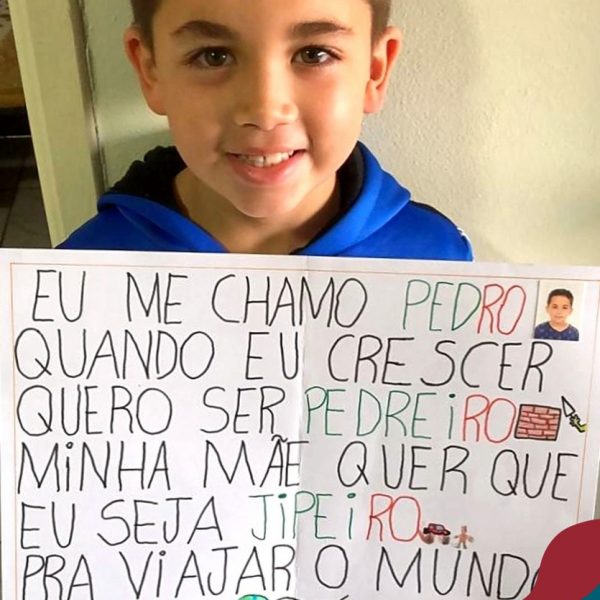 EU ME CHAMO PEDRO
QUANDO EU CRESCER
QUERO SER PEDREiRO
MiNHA MÃE QUER QUE
EU SEJA JiPEiRO
PRA ViAJAR O MUNDO